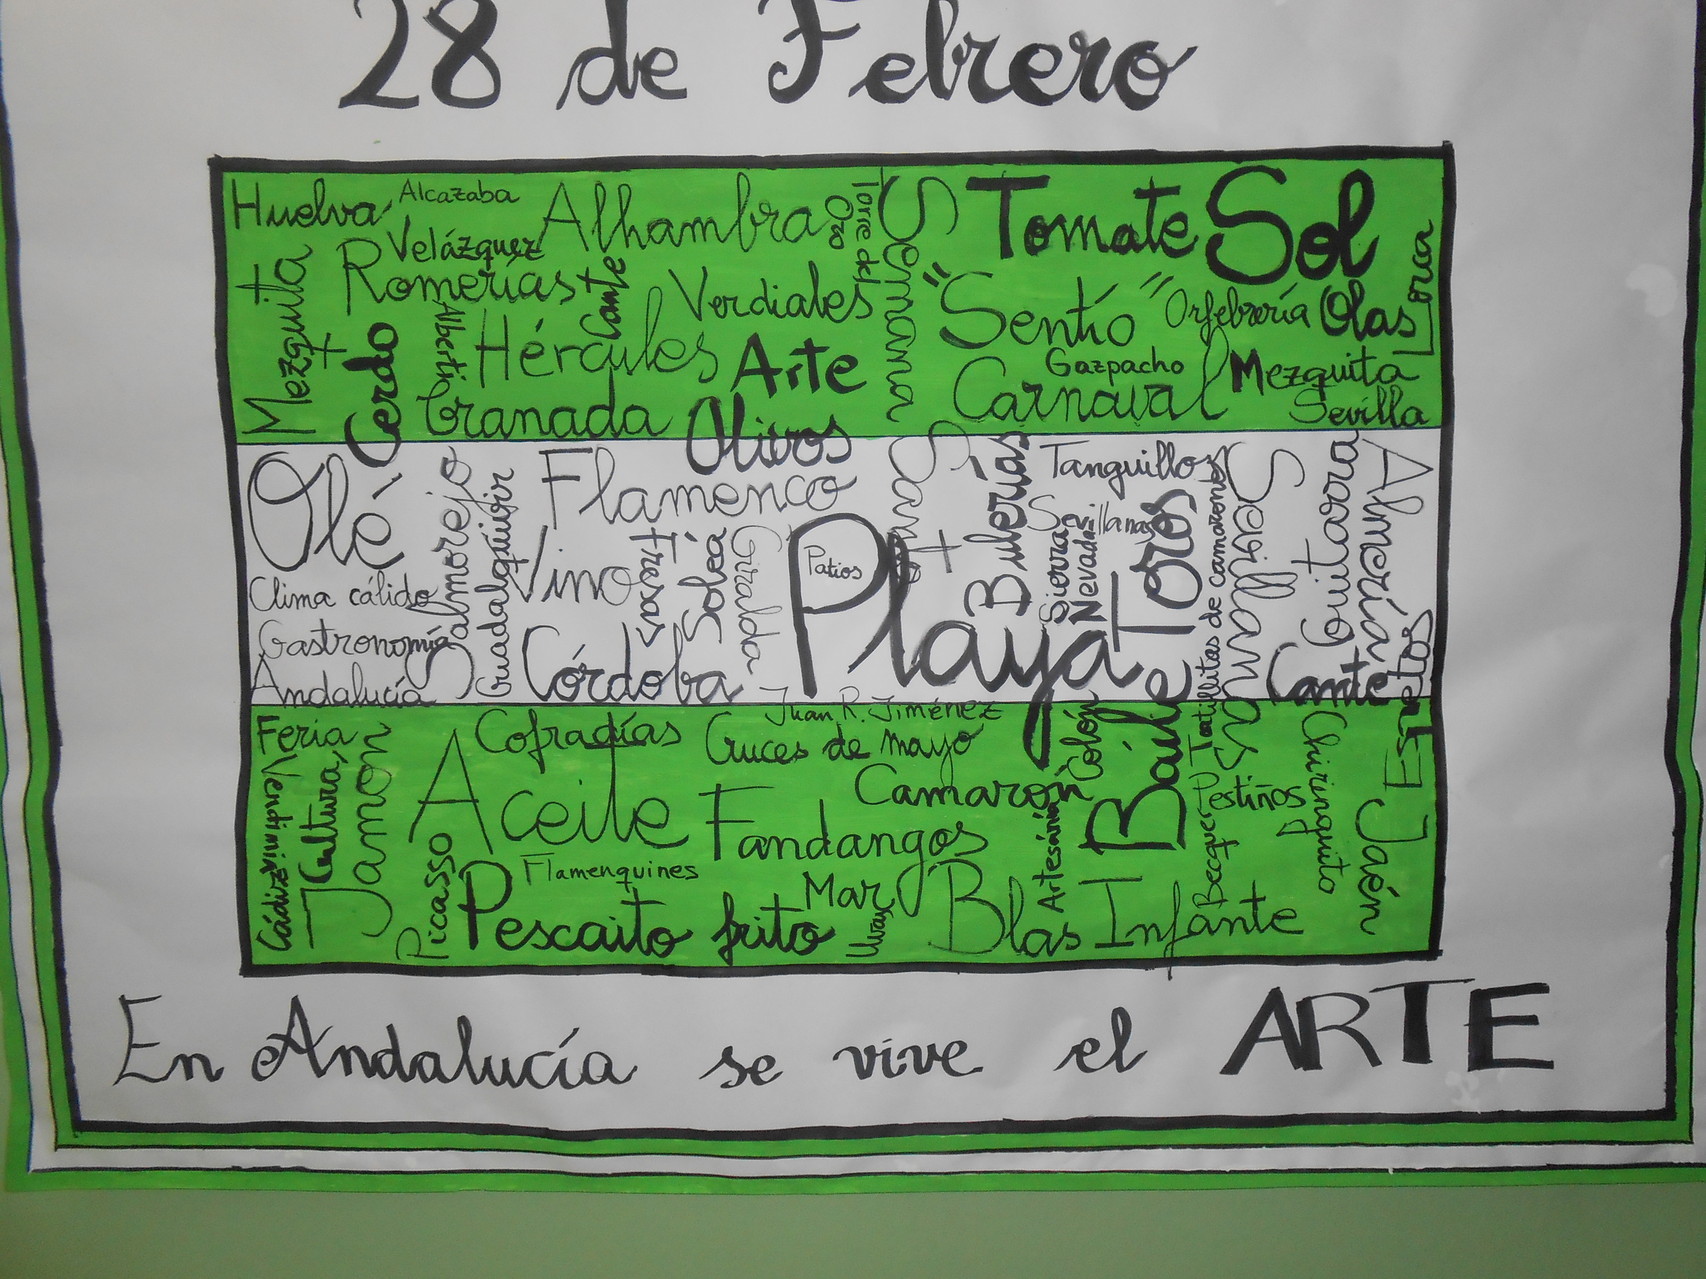 28 de Febrero
Huelva
Alcazaba
Alhambra
Torre del Oro
Semana
Tomate
Sol
Velázquez
Mezquita
Romerías
Cante
Verdiales
"Sentío"
Orfebrería
Olas
Lorca
Cerdo
Alberti
Hércules
Arte
Gazpacho
Mezquita
Granada
Carnaval
Sevilla
Olivos
Olé
Salmorejo
Guadalquivir
Flamenco
Santa
Bulerías
Tanguillos
Sevillanas
Guitarra
Almería
Vino
Fresas
Soleá
Giralda
Patios
Playa
Sevillanas
Sierra Nevada
Toros
Tortillitas de camarones
Clima cálido
Gastronomía
Andalucía
Córdoba
Cante
Espetos
Juan R. Jiménez
Feria
Vendimia
Cultura
Jamón
Cofradías
Cruces de mayo
Colón
Baile
Chiringuito
Aceite
Camarón
Pestiños
Fandangos
Artesanía
Becquer
Jaén
Cádiz
Picasso
Flamenquines
Pescaito frito
Mar
Uvas
Blas Infante
En Andalucía se vive el ARTE